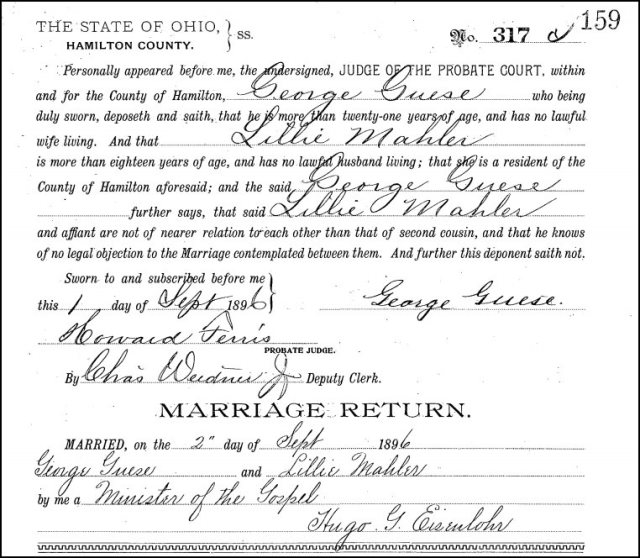 159
THE STATE OF OHIO, } ss.
HAMILTON COUNTY.
No. 317
Personally appeared before me, the undersigned, JUDGE OF THE PROBATE COURT, within
and for the County of Hamilton, George Guese who being
duly sworn, deposeth and saith, that he is more than twenty-one years of age, and has no lawful
wife living. And that Lillie Mahler
is more than eighteen years of age, and has no lawful husband living; that she is a resident of the
County of Hamilton aforesaid; and the said George Guese
further says, that said Lillie Mahler
and affiant are not of nearer relation to each other than that of second cousin, and that he knows
of no legal objection to the Marriage contemplated between them. And further this deponent saith not.
Sworn to and subscribed before me
this 1 day of Sept 1896 } George Guese.
Howard Ferris
PROBATE JUDGE.
By Chas Weidner Jr Deputy Clerk.
MARRIAGE RETURN.
MARRIED, on the 2" day of Sept 1896
George Guese and Lillie Mahler
by me a Minister of the Gospel
Hugo G. Eisenlohr